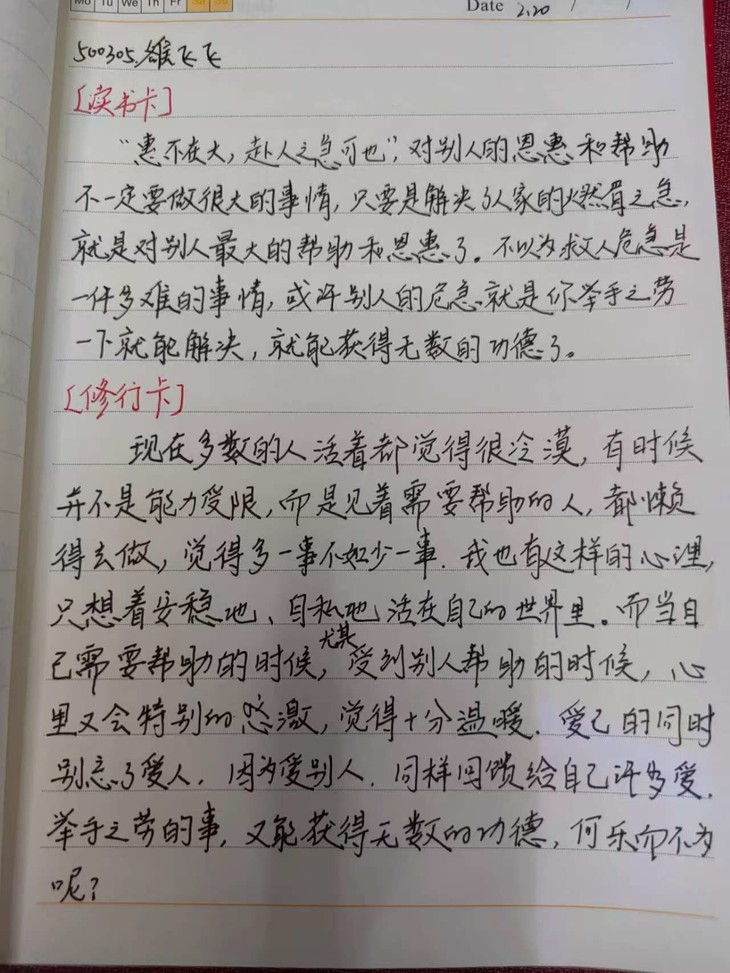 Mo Tu We Th Fr Sa Su
Date 2.20 / /
500305.雒飞飞
[读书卡]
“惠不在大，赴人之急可也”，对别人的恩惠和帮助
不一定要做很大的事情，只要是解决了人家的燃眉之急，
就是对别人最大的帮助和恩惠了。不以为救人危急是
一件多难的事情，或许别人的危急就是你举手之劳
一下就能解决，就能获得无数的功德了。
[修行卡]
现在多数的人活着都觉得很冷漠，有时候
并不是能力受限，而是见着需要帮助的人，都懒
得去做，觉得多一事不如少一事．我也有这样的心理，
只想着安稳地、自私地活在自己的世界里。而当自
己需要帮助的时候，尤其受到别人帮助的时候，心
里又会特别的感激，觉得十分温暖．爱己的同时
别忘了爱人．因为爱别人．同样回馈给自己许多爱．
举手之劳的事，又能获得无数的功德，何乐而不为
呢？